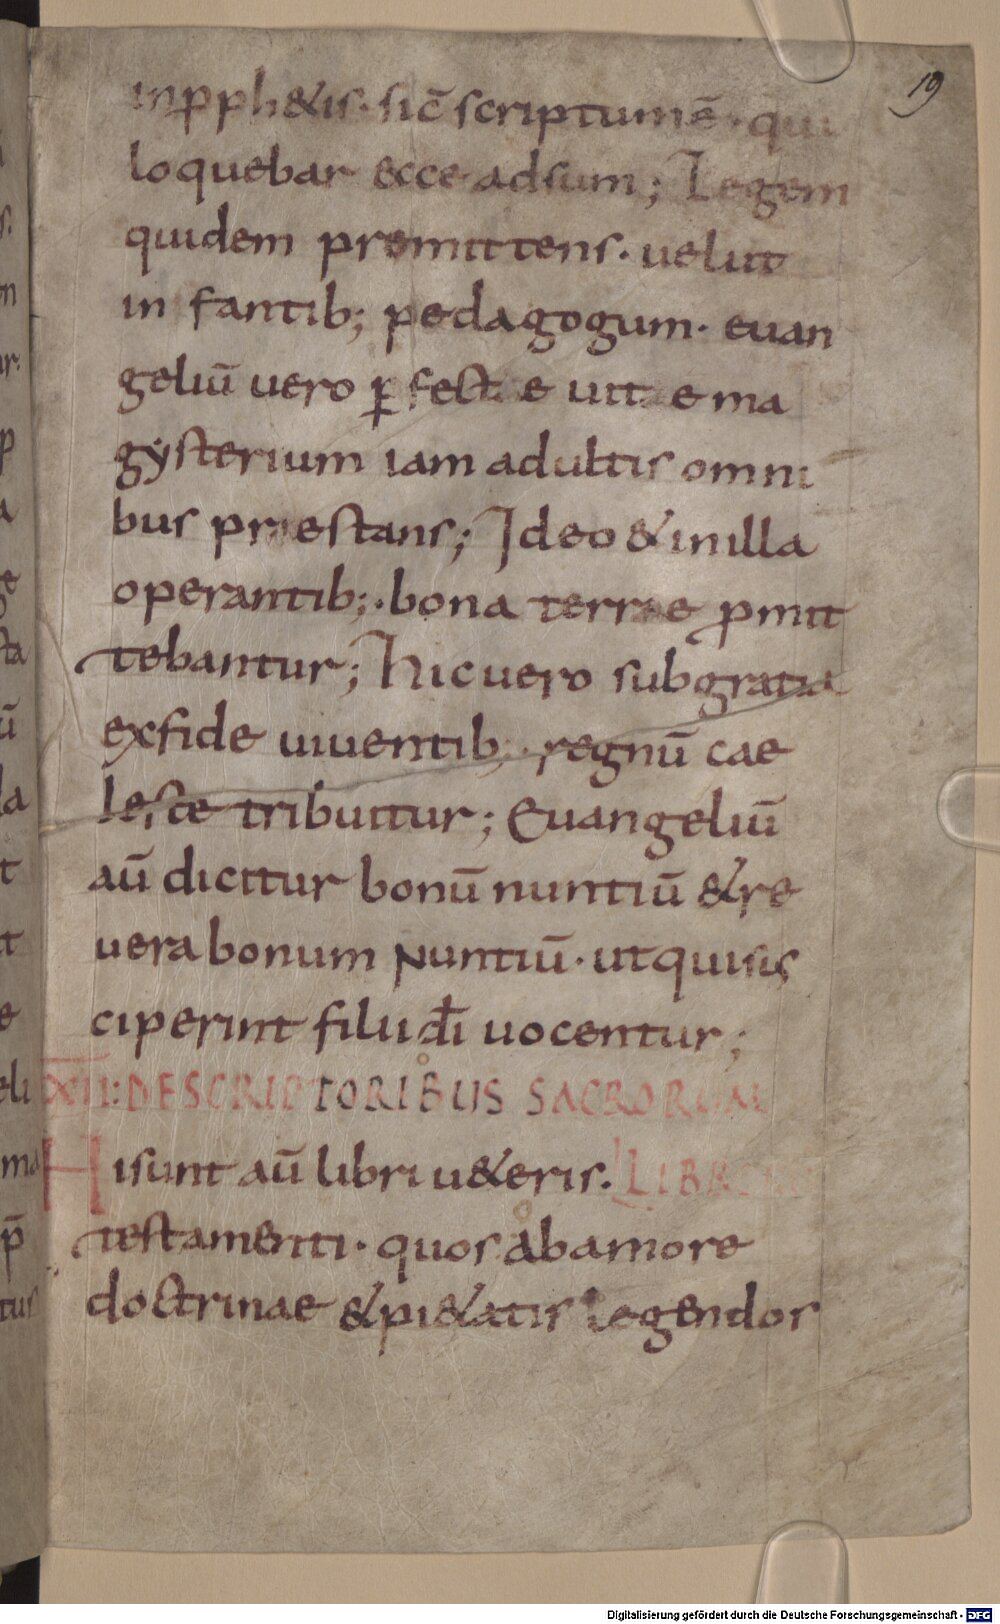 19
inpph&is · sic̄ scriptum ē · qui
loquebar ecce adsum; Legem
quidem premittens · uelut
in fantib; pedagogum · euan
geliū uero ꝑfecte uitae ma
gysterium iam adultis omni
bus praestans; Ideo & in illa
operantib; · bona terrae ꝓmit
tebantur; hic uero sub gratia
exfide uiuentib; · regnū cae
leste tribuitur; Euangeliū
aū dicitur bonū nuntiū & re
uera bonum Nuntiū · ut qui sus
ciperint filii dī uocentur;
XII: DE SCRIPTORIBUS SACRORUM
Hi sunt aū libri u&eris · LIBRORUM
testamenti · quos ab amore
doctrinae & pi&atis legendos
Digitalisierung gefördert durch die Deutsche Forschungsgemeinschaft - DFG